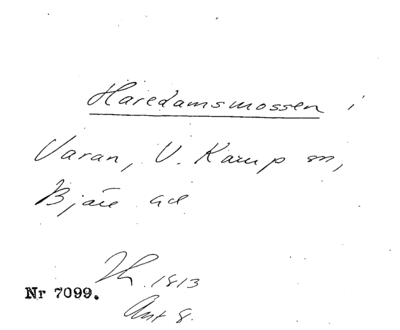 Haredamsmossen i
Varan, V. Karup sn,
Bjäre hd
1813
Nr 7099.
Ant 8.